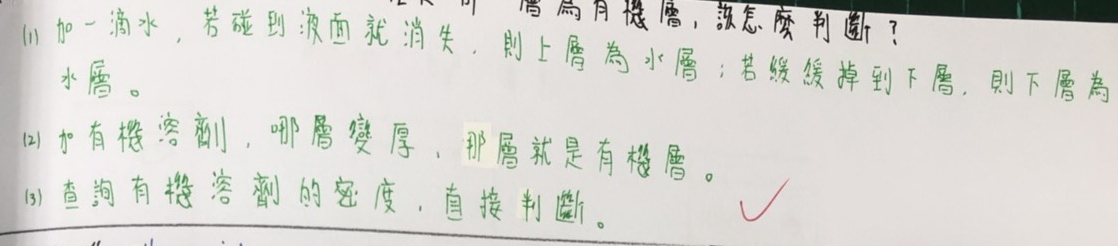 層為有機層，該怎麼判斷？
(1) 加一滴水，若碰到液面就消失，則上層為水層；若緩緩掉到下層，則下層為
水層。
(2) 加有機溶劑，哪層變厚，那層就是有機層。
(3) 查詢有機溶劑的密度，直接判斷。